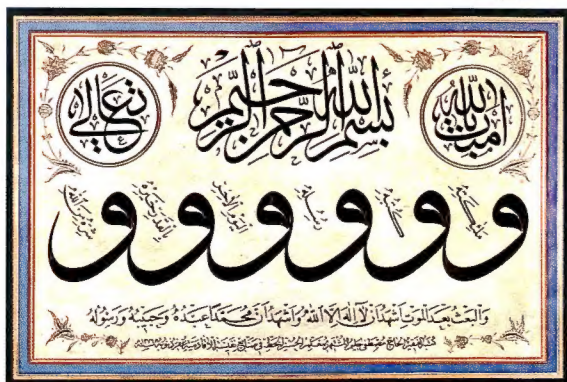 بسم الله الرحمن الرحيم
امنت بالله
تعالى
و ملئكته و كتبه و رسله و اليوم الاخر و بالقدر خيره و شره من الله
والبعث بعد الموت اشهد ان لا اله الا الله واشهد ان محمدا عبده وحبيبه ورسوله